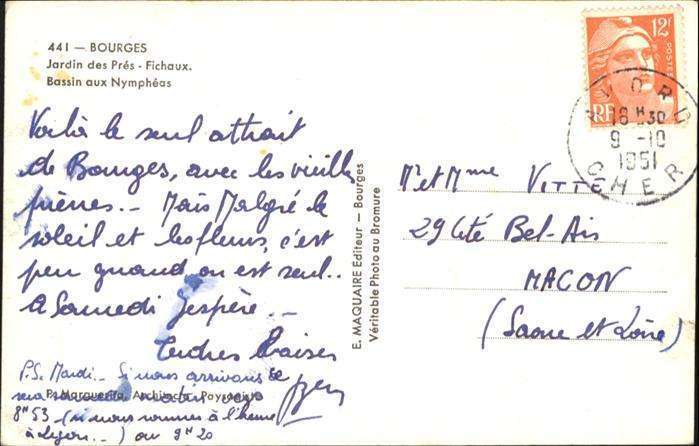 441 — BOURGES
Jardin des Prés - Fichaux.
Bassin aux Nymphéas
Voilà le seul attrait
de Bourges, avec les vieilles
pierres.. Mais Malgré le
soleil et les fleurs, c'est
peu quand on est seul..
A Samedi j'espère..
Tendres Baisers
P.S. Mardi.. Si nous arrivons
8H53 (si nous sommes à l'heure
à Lyon..) ou 9H20
P. Marguerita, Architecte - Paysagiste
E. MAQUAIRE Editeur — Bourges
Véritable Photo au Bromure
12F
POSTES
RF
AVORD
18H30
9 -10
1951
CHER
Mr et Mme VITTE
29 Cité Bel-Air
MACON
(Saone et Loire)